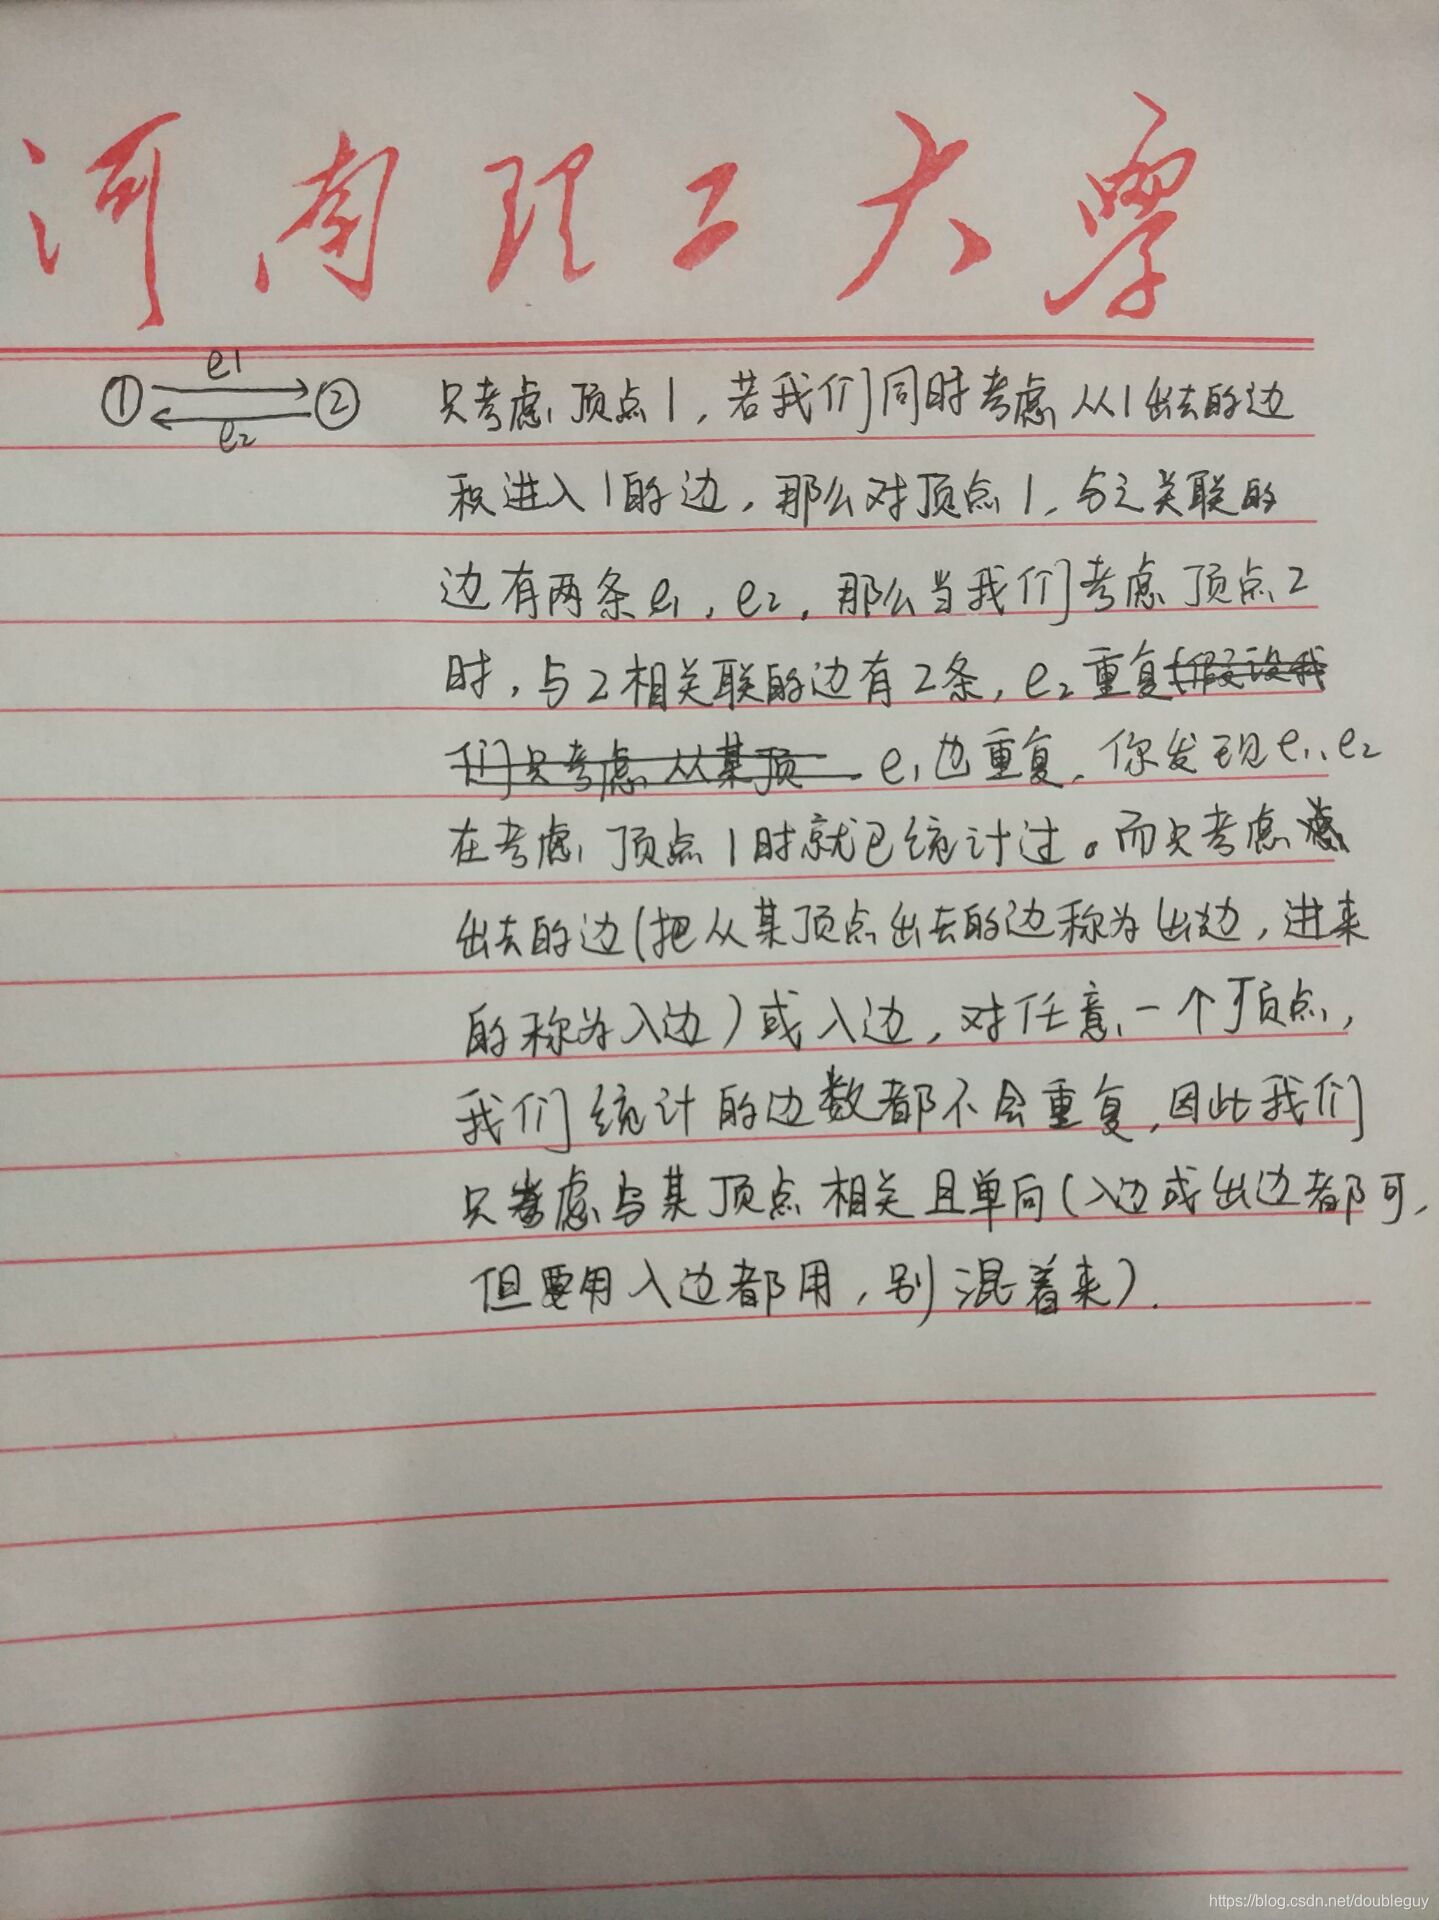 河南理工大學
e1
① ②
e2
只考虑顶点1，若我们同时考虑从1出去的边
和进入1的边，那么对顶点1，与之关联的
边有两条e1，e2，那么当我们考虑顶点2
时，与2相关联的边有2条，e2重复（假设我
们只考虑从某顶 . e1也重复，你发现e1、e2
在考虑顶点1时就已统计过。而只考虑
出去的边（把从某顶点出去的边称为出边，进来
的称为入边）或入边，对任意一个顶点，
我们统计的边数都不会重复，因此我们
只考虑与某顶点相关且单向（入边或出边都可，
但要用入边都用，别混着来）．
https://blog.csdn.net/doubleguy